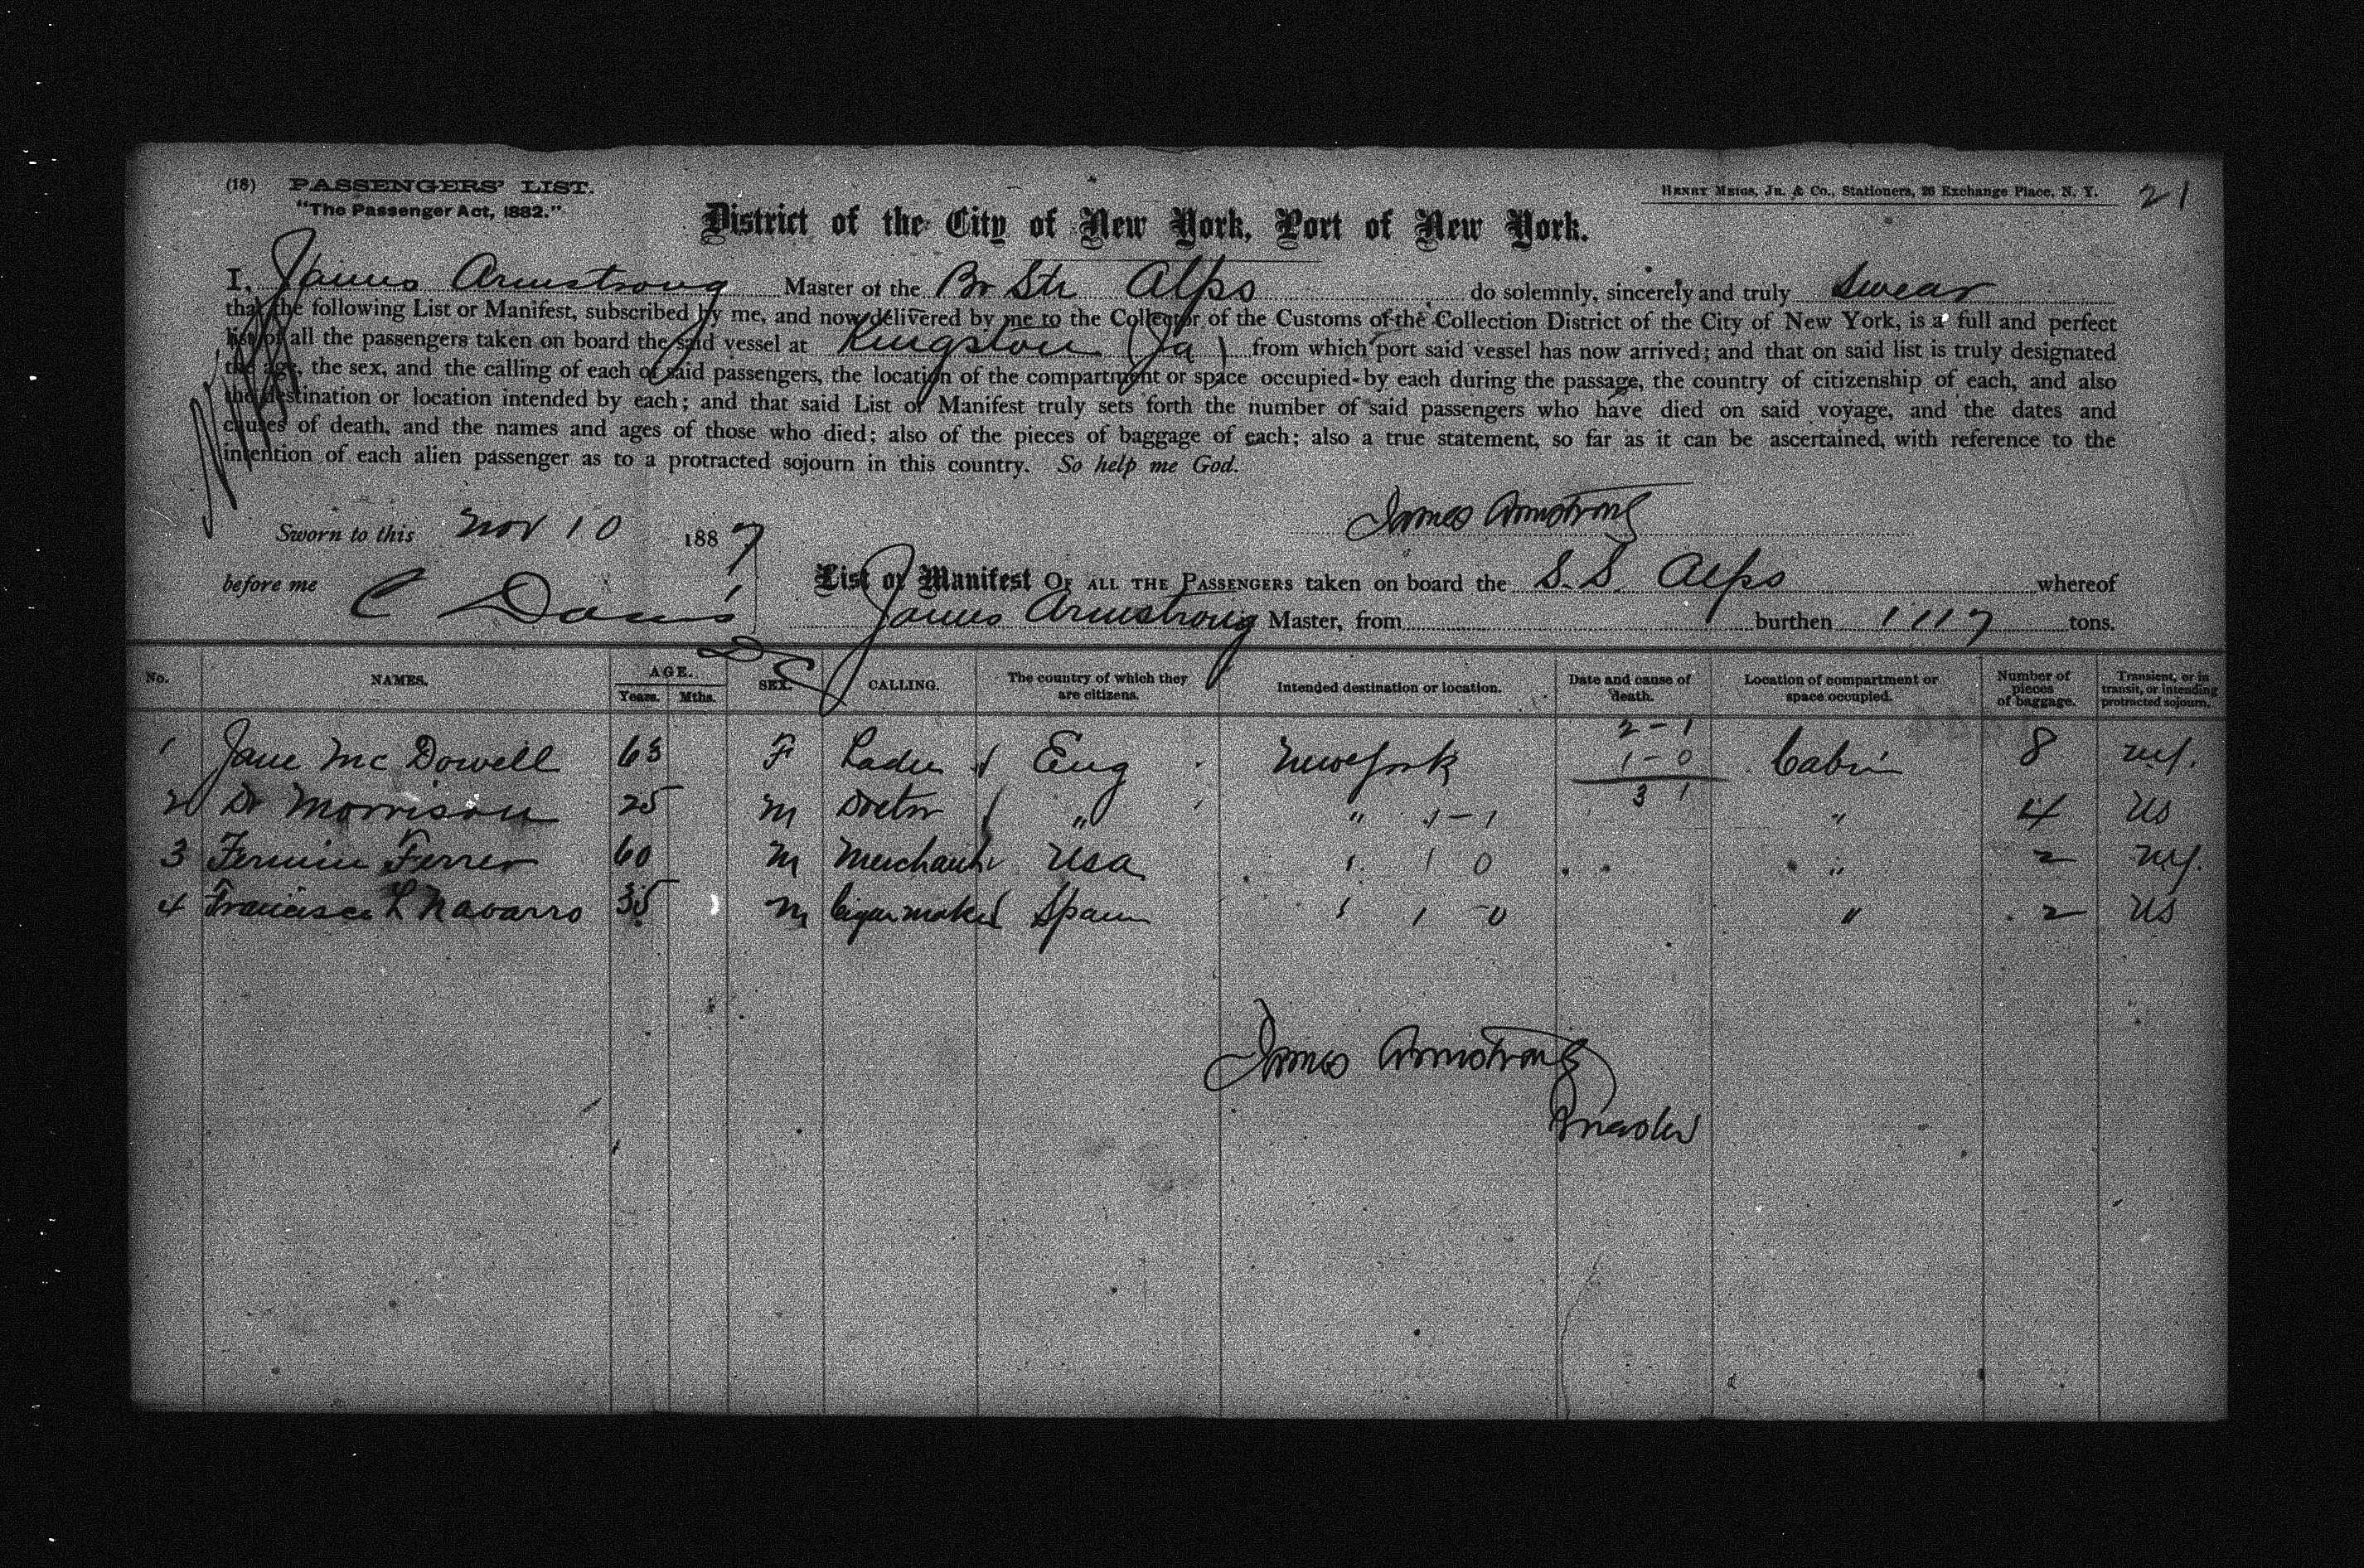 (18) PASSENGERS' LIST.
"The Passenger Act, 1882."
HENRY MEIGS, JR. & CO., Stationers, 26 Exchange Place, N. Y.
21
District of the City of New York, Port of New York.
I, James Armstrong Master of the Br Str Alps do solemnly, sincerely and truly Swear
that the following List or Manifest, subscribed by me, and now delivered by me to the Collector of the Customs of the Collection District of the City of New York, is a full and perfect
list of all the passengers taken on board the said vessel at Kingston (Ja) from which port said vessel has now arrived; and that on said list is truly designated
the age, the sex, and the calling of each of said passengers, the location of the compartment or space occupied by each during the passage, the country of citizenship of each, and also
the destination or location intended by each; and that said List or Manifest truly sets forth the number of said passengers who have died on said voyage, and the dates and
causes of death, and the names and ages of those who died; also of the pieces of baggage of each; also a true statement, so far as it can be ascertained, with reference to the
intention of each alien passenger as to a protracted sojourn in this country. So help me God.
James Armstrong
Sworn to this Nov 10 1887
before me C Davis
List or Manifest OF ALL THE PASSENGERS taken on board the S.S. Alps whereof
James Armstrong Master, from burthen 1117 tons.
No. NAMES. AGE. Years. Mths. SEX. CALLING. The country of which they are citizens. Intended destination or location. Date and cause of death. Location of compartment or space occupied. Number of pieces of baggage. Transient, or in transit, or intending protracted sojourn.
2 - 1
1 Jane McDowell 63 F Eng New York 1 - 0 Cabin 8
3 1
2 Dr Morrison 25 M Doctor " " 1 - 1 " 4 US
3 Fermin Ferrer 60 M Merchant USA 1 0 " 2
4 Francisco L Navarro 35 M Cigarmaker Spain 1 - 0 " 2 US
James Armstrong
Master